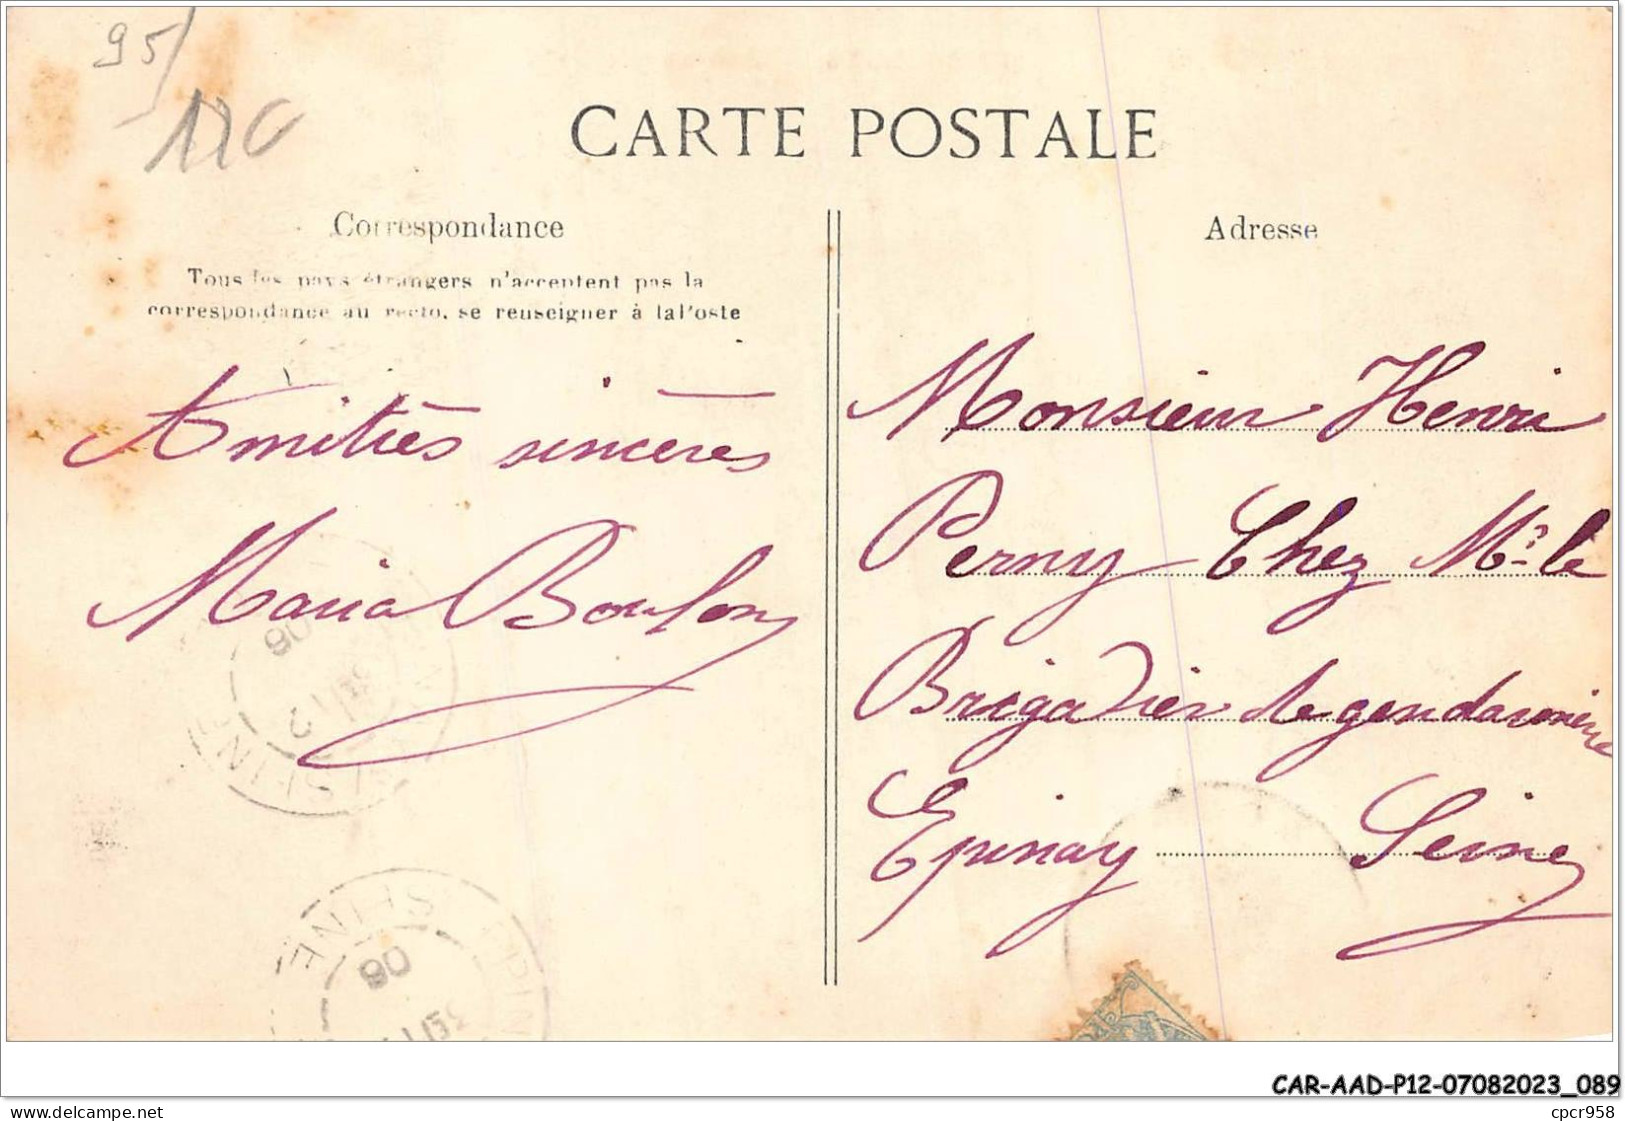 95/
CARTE POSTALE
Correspondance
Tous les pays étrangers n'acceptent pas la
correspondance au recto, se renseigner à la Poste
Amitiés sincères
Maria Boulon
Adresse
Monsieur Henri
Perny Chez Mr. le
Brigadier de gendarmerie
Epinay Seine
08
SEINE
SEINE
08
CAR-AAD-P12-07082023_089
delcampe.net
cpcr958